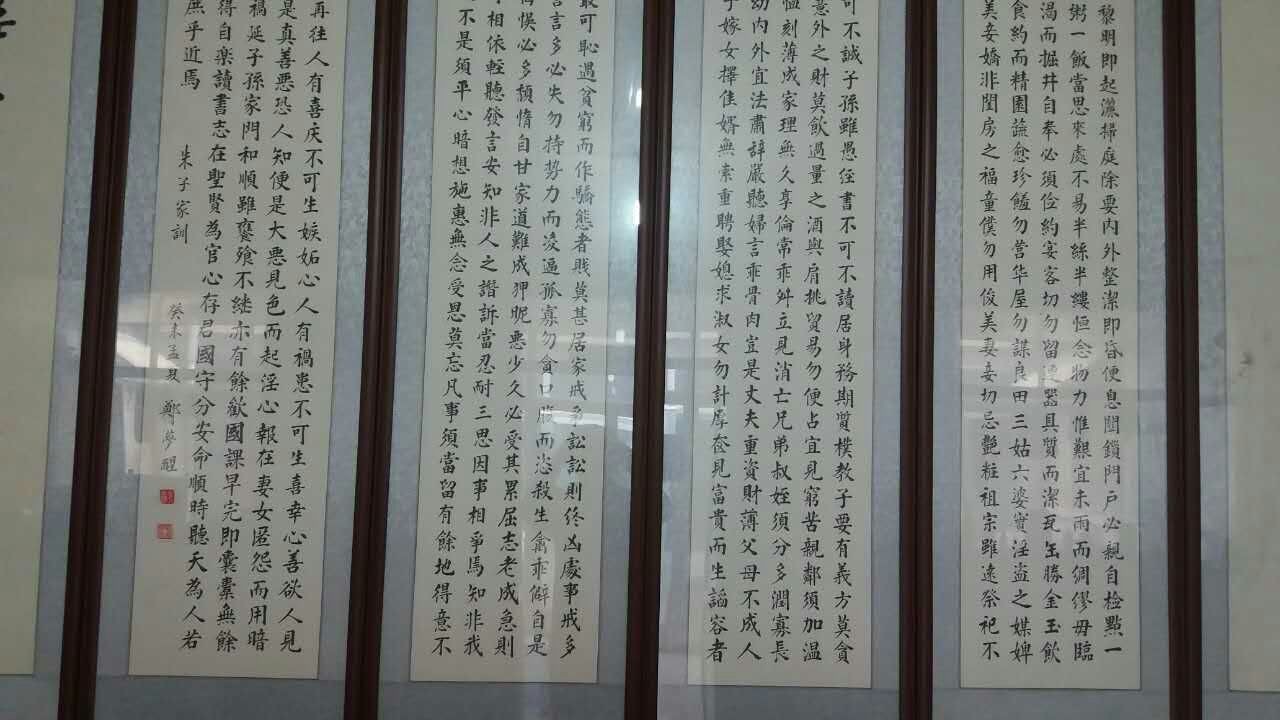 黎明即起灑掃庭除要内外整潔即昏便息關鎖門戶必親自檢點一
粥一飯當思來處不易半絲半縷恒念物力惟艱宜未雨而綢繆毋臨
渴而掘井自奉必須儉約宴客切勿留連器具質而潔瓦缶勝金玉飲
食約而精園蔬愈珍饈勿营华屋勿謀良田三姑六婆實淫盜之媒婢
美妾嬌非閨房之福童僕勿用俊美妻妾切忌艷粧祖宗雖遠祭祀不
可不誠子孫雖愚經書不可不讀居身務期質樸教子要有義方莫貪
意外之財莫飲過量之酒與肩挑貿易勿便占宜見窮苦親鄰須加温
恤刻薄成家理無久享倫常乖舛立見消亡兄弟叔姪須分多潤寡長
幼内外宜法肅辭嚴聽婦言乖骨肉豈是丈夫重資財薄父母不成人
子嫁女擇佳婿無索重聘娶媳求淑女勿計厚奩見富貴而生諂容者
最可恥遇貧窮而作驕態者賤莫甚居家戒爭訟訟則终凶處事戒多
言言多必失勿持势力而凌逼孤寡勿貪口腹而恣殺生禽乖僻自是
悔悞必多頹惰自甘家道難成狎昵恶少久必受其累屈志老成急則
可相依輕聽發言安知非人之譖訴當忍耐三思因事相爭焉知非我
之不是須平心暗想施惠無念受恩莫忘凡事須當留有餘地得意不
再往人有喜庆不可生嫉妬心人有禍患不可生喜幸心善欲人見
是真善惡恐人知便是大悪見色而起淫心報在妻女匿怨而用暗
禍延子孫家門和順雖饔飧不继亦有餘歡國課早完即囊橐無餘
得自樂讀書志在聖賢為官心存君國守分安命順時聽天為人若
庶乎近焉
朱子家訓
癸未孟夏 鄭夢醒